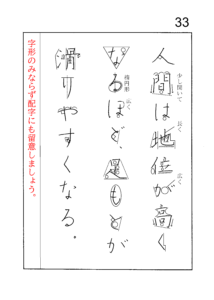 33
人間は地位が高く
少し開いて
長く
広く
なるほど、足もとが
楕円形
広く
滑りやすくなる。
字形のみならず配字にも留意しましょう。